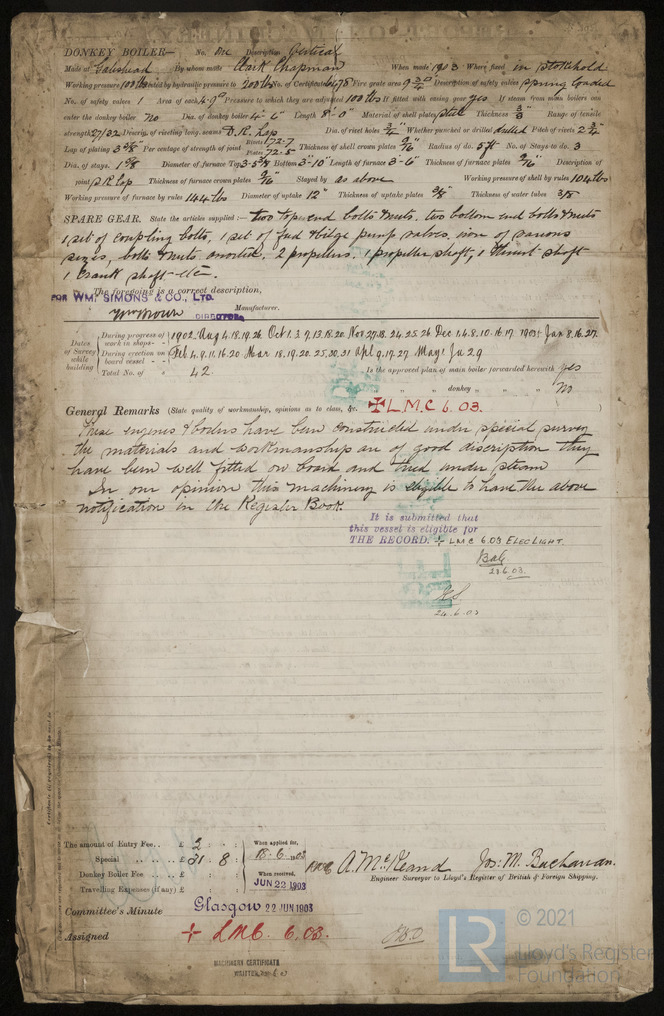 DONKEY BOILER— No. One Description Vertical
Made at Gateshead By whom made Clark Chapman When made 1903 Where fixed in Stokehold
Working pressure 100 lbs tested by hydraulic pressure to 200 lbs No. of Certificate 6478 Fire grate area Description of safety valves Spring Loaded
No. of safety valves 1 Area of each 4.9" Pressure to which they are adjusted 100 lbs If fitted with easing gear yes If steam from main boilers can
enter the donkey boiler No Dia. of donkey boiler 4'-6" Length 8'-0" Material of shell plates Steel Thickness Range of tensile
strength 27/32 Descrip. of riveting long. seams D.R. Lap Dia. of rivet holes 3/4" Whether punched or drilled drilled Pitch of rivets
Lap of plating Per centage of strength of joint Rivets 72.7 Plates 72.5 Thickness of shell crown plates 9/16" Radius of do. 5 ft No. of Stays to do. 3
Dia. of stays. Diameter of furnace Top Bottom 3'-10" Length of furnace 3'-6" Thickness of furnace plates 9/16" Description of
joint S.R. Lap Thickness of furnace crown plates 9/16" Stayed by as above Working pressure of shell by rules 104 lbs
Working pressure of furnace by rules 144 lbs Diameter of uptake 12" Thickness of uptake plates 3/8" Thickness of water tubes 3/8
SPARE GEAR. State the articles supplied:— two top end bolts & nuts, two bottom end bolts & nuts
1 set of coupling bolts, 1 set of feed & bilge pump valves, iron of various
sizes, bolts & nuts assorted, 2 propellers, 1 propeller shaft, 1 thrust shaft
1 Crank shaft etc.
The foregoing is a correct description,
FOR WM. SIMONS & CO., LTD.
Wm Brown DIRECTOR Manufacturer.
Dates of Survey while building
During progress of work in shops - - 1902. Aug 4. 18. 19. 26. Oct 1. 3. 7. 13. 18. 20. Nov 18. 24. 25. 26 Dec 1. 4. 8. 10. 16. 17. 1903 Jan 8. 16. 27.
During erection on board vessel - - - Feb 4. 9. 11. 16. 20 Mar 18. 19. 20. 25. 30. 31 Apl 9. 17. 27 May 1. Ju 2. 9
Total No. of 42 Is the approved plan of main boiler forwarded herewith yes
" " " donkey " " " No
General Remarks (State quality of workmanship, opinions as to class, &c. ✠ L.M.C. 6.03.
These engines & boilers have been constructed under special survey
the materials and workmanship are of good discription they
have been well fitted on board and tried under steam
In our opinion this machinery is eligible to have the above
notification in the Register Book.
It is submitted that
this vessel is eligible for
THE RECORD. + LMC 6.03 ELEC LIGHT.
23.6.03.
24.6.03
The amount of Entry Fee.. .. £ 2 : :
Special .. .. £ 31 : 8 :
Donkey Boiler Fee .. .. £ : :
Travelling Expenses (if any) £ : :
When applied for,
18.6.1903
When received,
JUN 22 1903
A. McKeand Jos: M. Buchanan.
Engineer Surveyor to Lloyd's Register of British & Foreign Shipping.
Committee's Minute Glasgow 22 JUN 1903
Assigned + LMC. 6.03.
MACHINERY CERTIFICATE
WRITTEN
LR
© 2021
Lloyd's Register
Foundation